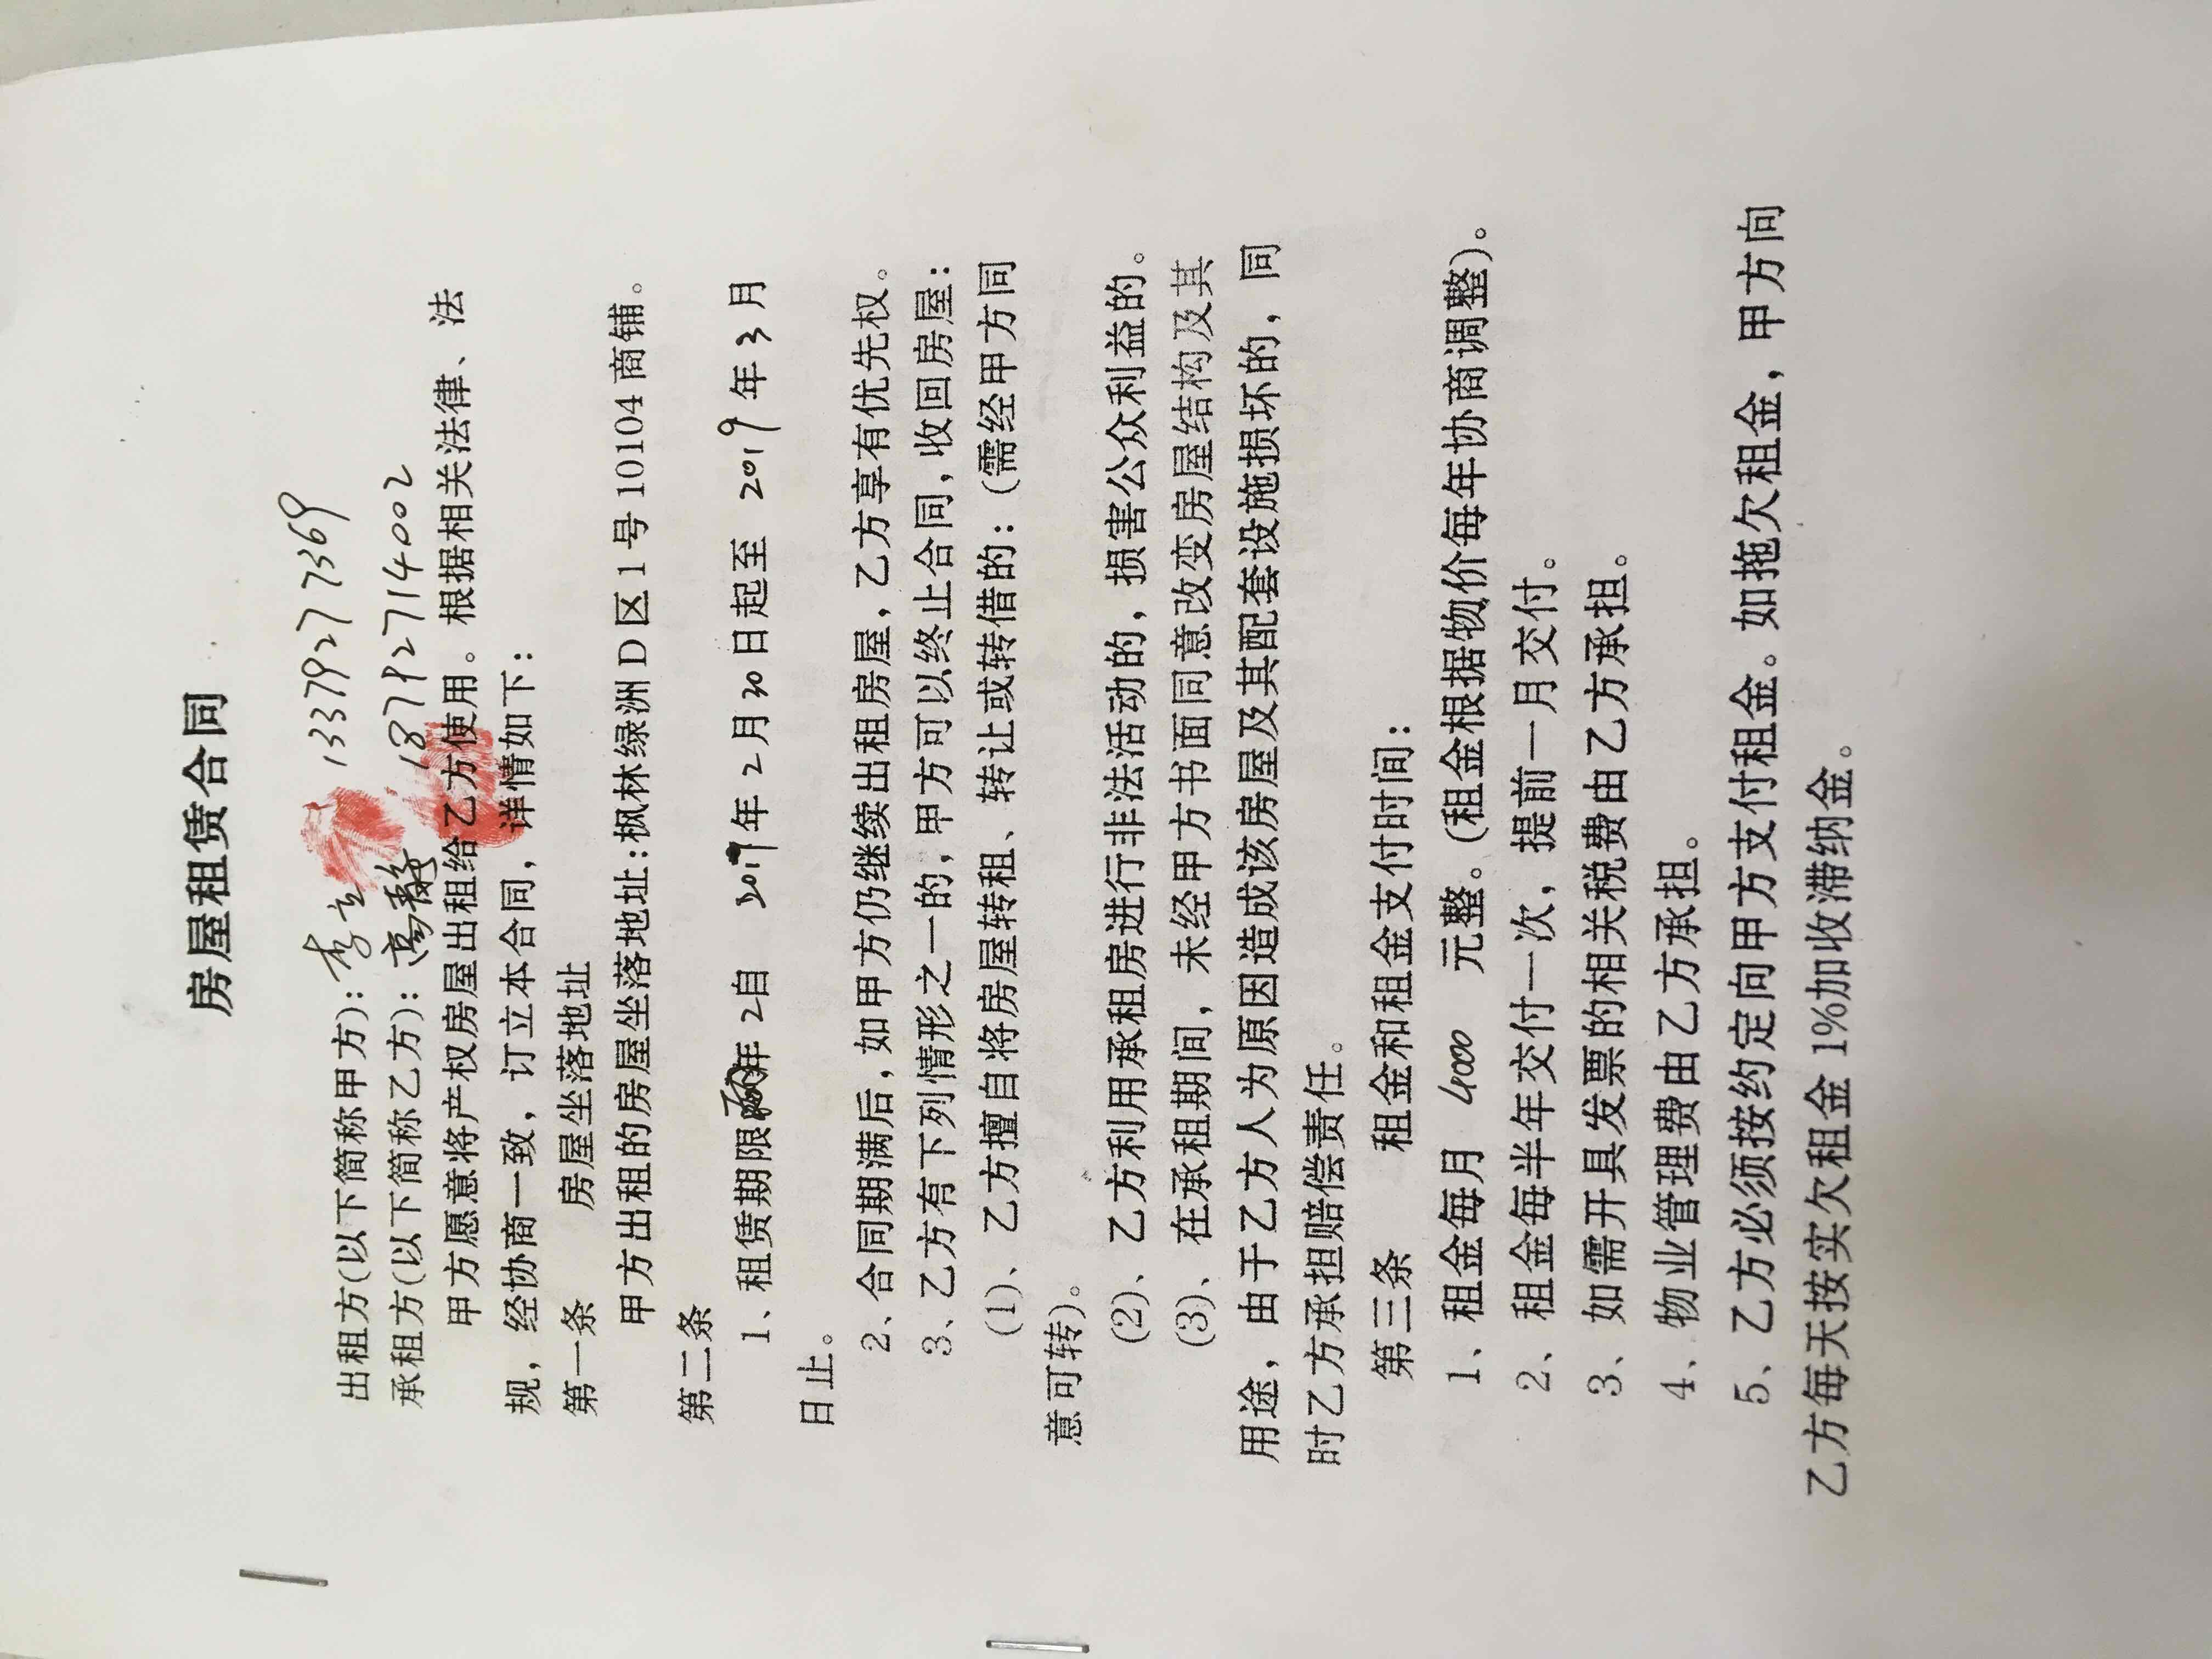 房屋租赁合同
出租方(以下简称甲方): 李立 13379277369
承租方(以下简称乙方): 高静 18792714002
甲方愿意将产权房屋出租给乙方使用。根据相关法律、法
规，经协商一致，订立本合同，详情如下:
第一条 房屋坐落地址
甲方出租的房屋坐落地址:枫林绿洲D区1号10104商铺。
第二条
1、租赁期限两年 2自 2017年2月30日起至 2019年3月
日止。
2、合同期满后,如甲方仍继续出租房屋,乙方享有优先权。
3、乙方有下列情形之一的,甲方可以终止合同,收回房屋:
(1)、乙方擅自将房屋转租、转让或转借的: (需经甲方同
意可转)。
(2)、乙方利用承租房进行非法活动的，损害公众利益的。
(3)、在承租期间，未经甲方书面同意改变房屋结构及其
用途，由于乙方人为原因造成该房屋及其配套设施损坏的，同
时乙方承担赔偿责任。
第三条 租金和租金支付时间:
1、租金每月 4000 元整。(租金根据物价每年协商调整)。
2、租金每半年交付一次，提前一月交付。
3、如需开具发票的相关税费由乙方承担。
4、物业管理费由乙方承担。
5、乙方必须按约定向甲方支付租金。如拖欠租金，甲方向
乙方每天按实欠租金1%加收滞纳金。